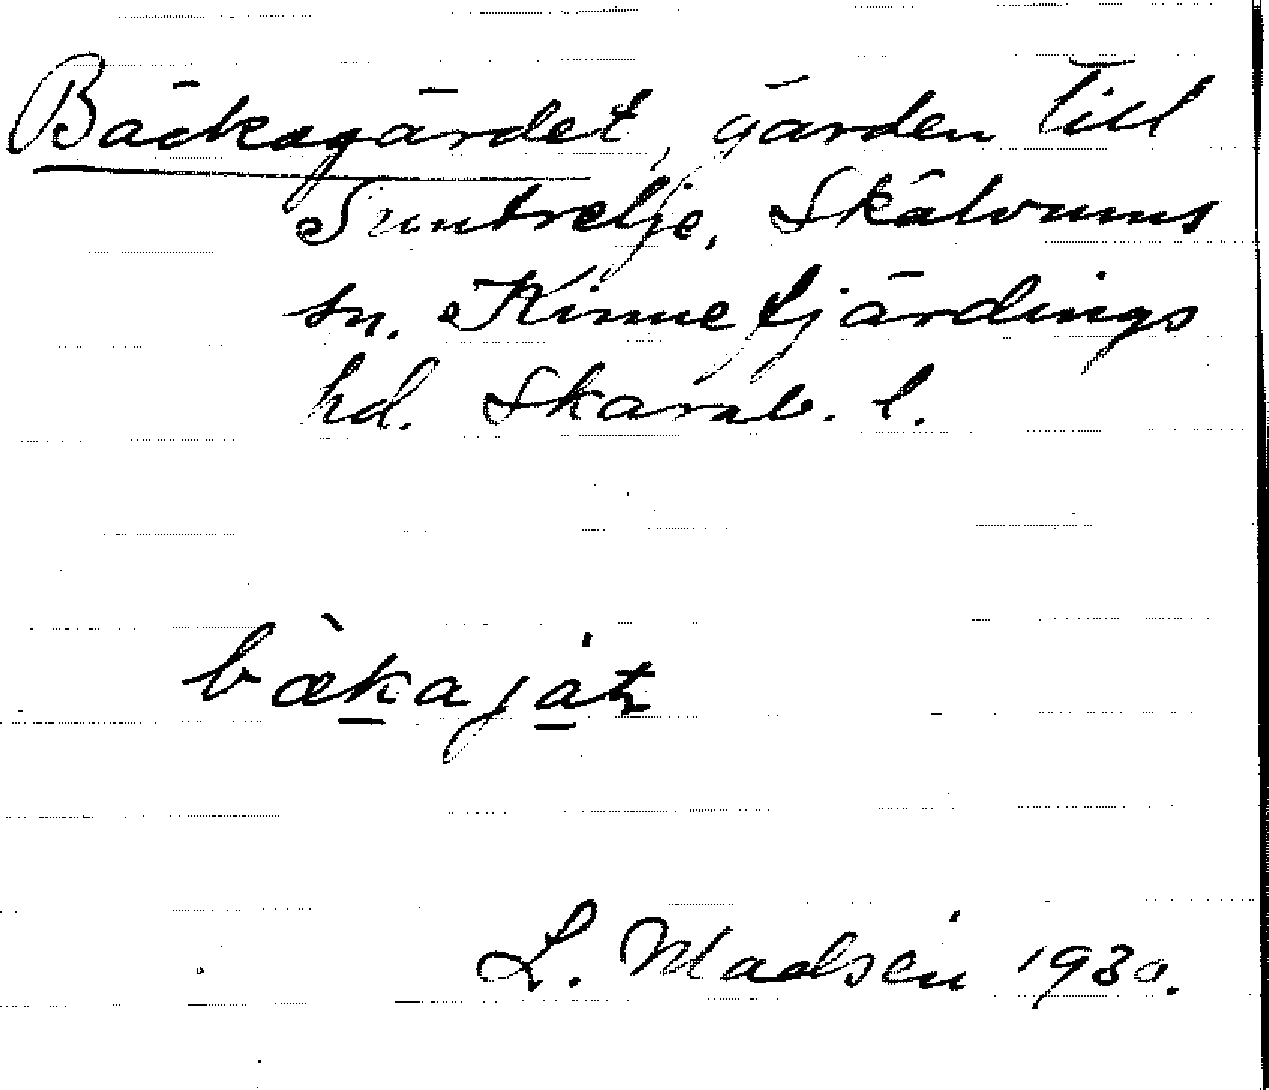 Bäckagärdet, gärden till
Suntvelje, Skälvums
sn. Kinnefjärdings
hd. Skarab. l.
bæ̀kajat
L. Madsén 1930.